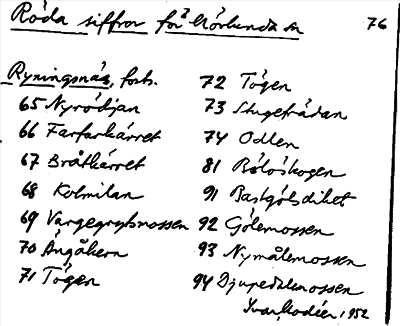 Röda siffror för Mörlunda sn 76
Ryningsnäs, forts.
65 Nyrödjan
66 Farfarkärret
67 Bråtkärret
68 Kolmilan
69 Vargegropsmossen
70 Ängåkern
71 Tögen
72 Tögen
73 Stugeträdan
74 Odlen
81 Bölöskogen
91 Bastgölsdiket
92 Gölemossen
93 Nymålemossen
94 Djupedalemossen
Ivar Modéer, 1952